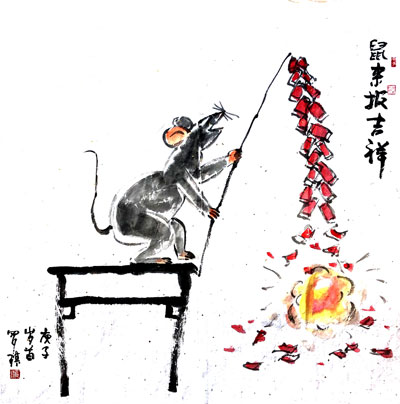 鼠来报吉祥
庚子
岁首